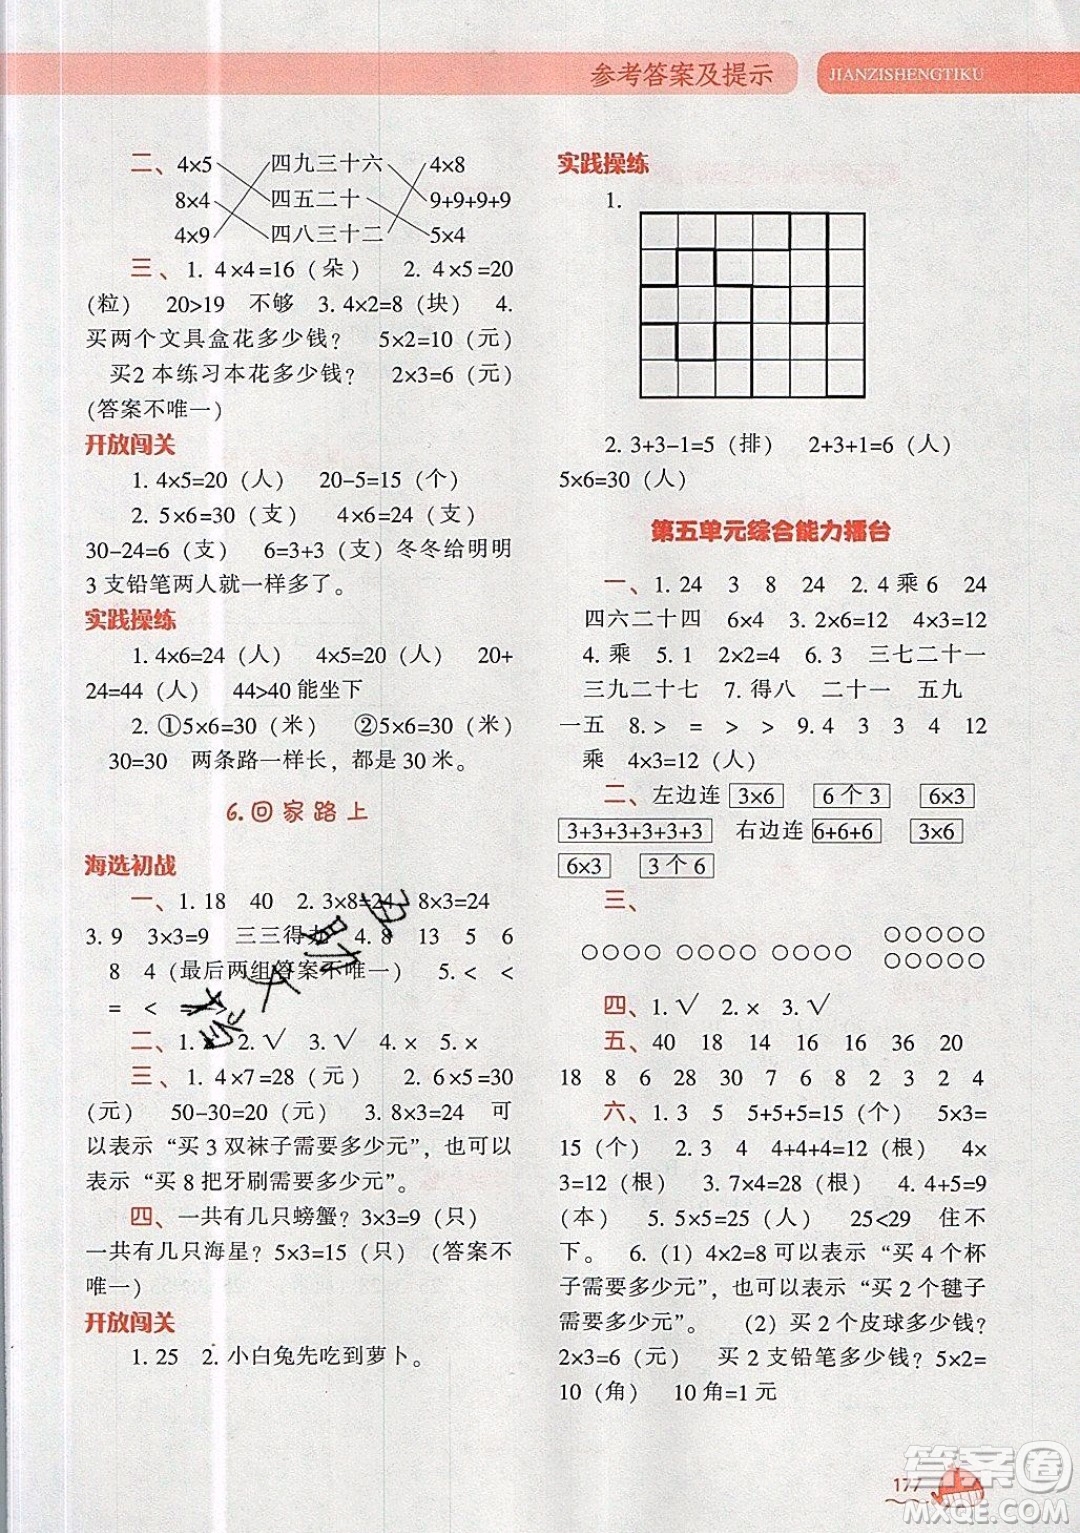 参考答案及提示
JIANZISHENGTIKU
二、4×5 四九三十六 4×8
8×4 四五二十 9+9+9+9
4×9 四八三十二 5×4
三、1. 4×4=16（朵） 2. 4×5=20
（粒） 20>19 不够 3. 4×2=8（块） 4.
买两个文具盒花多少钱？ 5×2=10（元）
买2本练习本花多少钱？ 2×3=6（元）
（答案不唯一）
开放闯关
1. 4×5=20（人） 20-5=15（个）
2. 5×6=30（支） 4×6=24（支）
30-24=6（支） 6=3+3（支）冬冬给明明
3支铅笔两人就一样多了。
实践操练
1. 4×6=24（人） 4×5=20（人） 20+
24=44（人） 44>40能坐下
2. ①5×6=30（米） ②5×6=30（米）
30=30 两条路一样长，都是30米。
6.回家路上
海选初战
一、1. 18 40 2. 3×8=24 8×3=24
3. 9 3×3=9 三三得九 4. 8 13 5 6
8 4（最后两组答案不唯一） 5. < <
= < =
二、1. 2. √ 3. √ 4. × 5. ×
三、1. 4×7=28（元） 2. 6×5=30
（元） 50-30=20（元） 3. 8×3=24 可
以表示“买3双袜子需要多少元”，也可以
表示“买8把牙刷需要多少元”。
四、一共有几只螃蟹？3×3=9（只）
一共有几只海星？5×3=15（只）（答案不
唯一）
开放闯关
1. 25 2. 小白兔先吃到萝卜。
实践操练
1.
2. 3+3-1=5（排） 2+3+1=6（人）
5×6=30（人）
第五单元综合能力擂台
一、1. 24 3 8 24 2. 4乘6 24
四六二十四 6×4 3. 2×6=12 4×3=12
4. 乘 5. 1 2×2=4 6. 3 三七二十一
三九二十七 7. 得八 二十一 五九
一五 8. > = > > 9. 4 3 3 4 12
乘 4×3=12（人）
二、左边连 3×6 6个3 6×3
3+3+3+3+3+3 右边连 6+6+6 3×6
6×3 3个6
三、
○○○○ ○○○○ ○○○○ ○○○○○
○○○○○
四、1. √ 2. × 3. √
五、40 18 10 16 36 20
18 8 6 24 20 7 12 3 2 4
六、1. 3 5 5+5+5=15（个） 5×3=
15（个） 2. 3 4 4+4+4=12（根） 4×
3=12（根） 3. 7×4=28（根） 4. 4+5=9
（本） 5. 5×5=25（人） 25<29 住不
下。 6. （1）4×2=8可以表示“买4个杯
子需要多少元”，也可以表示“买2个毽子
需要多少元”。 （2）买2个皮球多少钱？
2×3=6（元） 买2支铅笔多少钱？5×2=
10（角） 10角=1元
177
答案圈
MXQE.COM